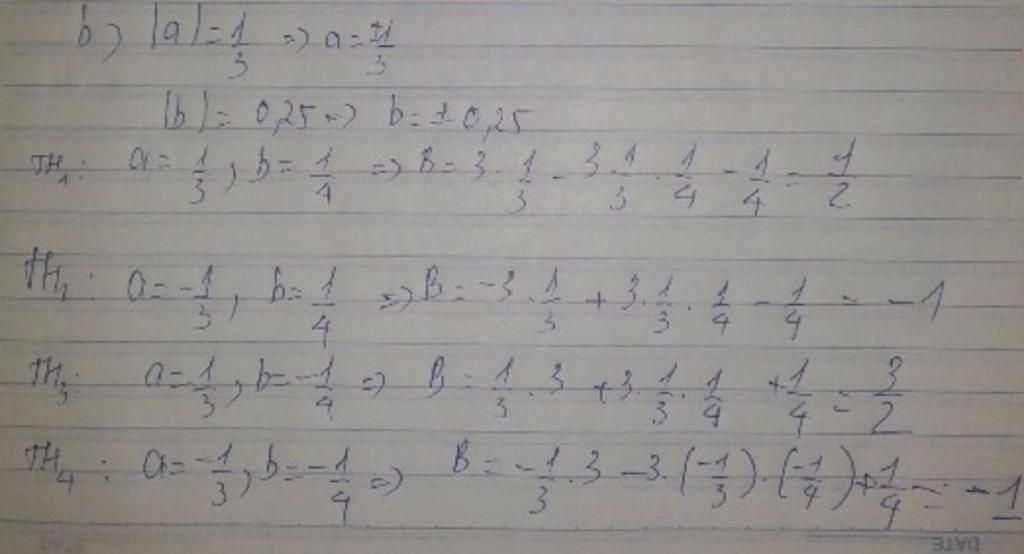 b) |a| = 1/3 => a = ±1/3
|b| = 0,25 => b = ± 0,25
TH1: a = 1/3, b = 1/4 => B = 3 . 1/3 - 3 . 1/3 . 1/4 - 1/4 = 1/2
TH2: a = -1/3, b = 1/4 => B = -3 . 1/3 + 3 . 1/3 . 1/4 - 1/4 = -1
TH3: a = 1/3, b = -1/4 => B = 1/3 . 3 + 3 . 1/3 . 1/4 + 1/4 = 3/2
TH4: a = -1/3, b = -1/4 => B = -1/3 . 3 - 3 . (-1/3) . (-1/4) + 1/4 = -1
DATE